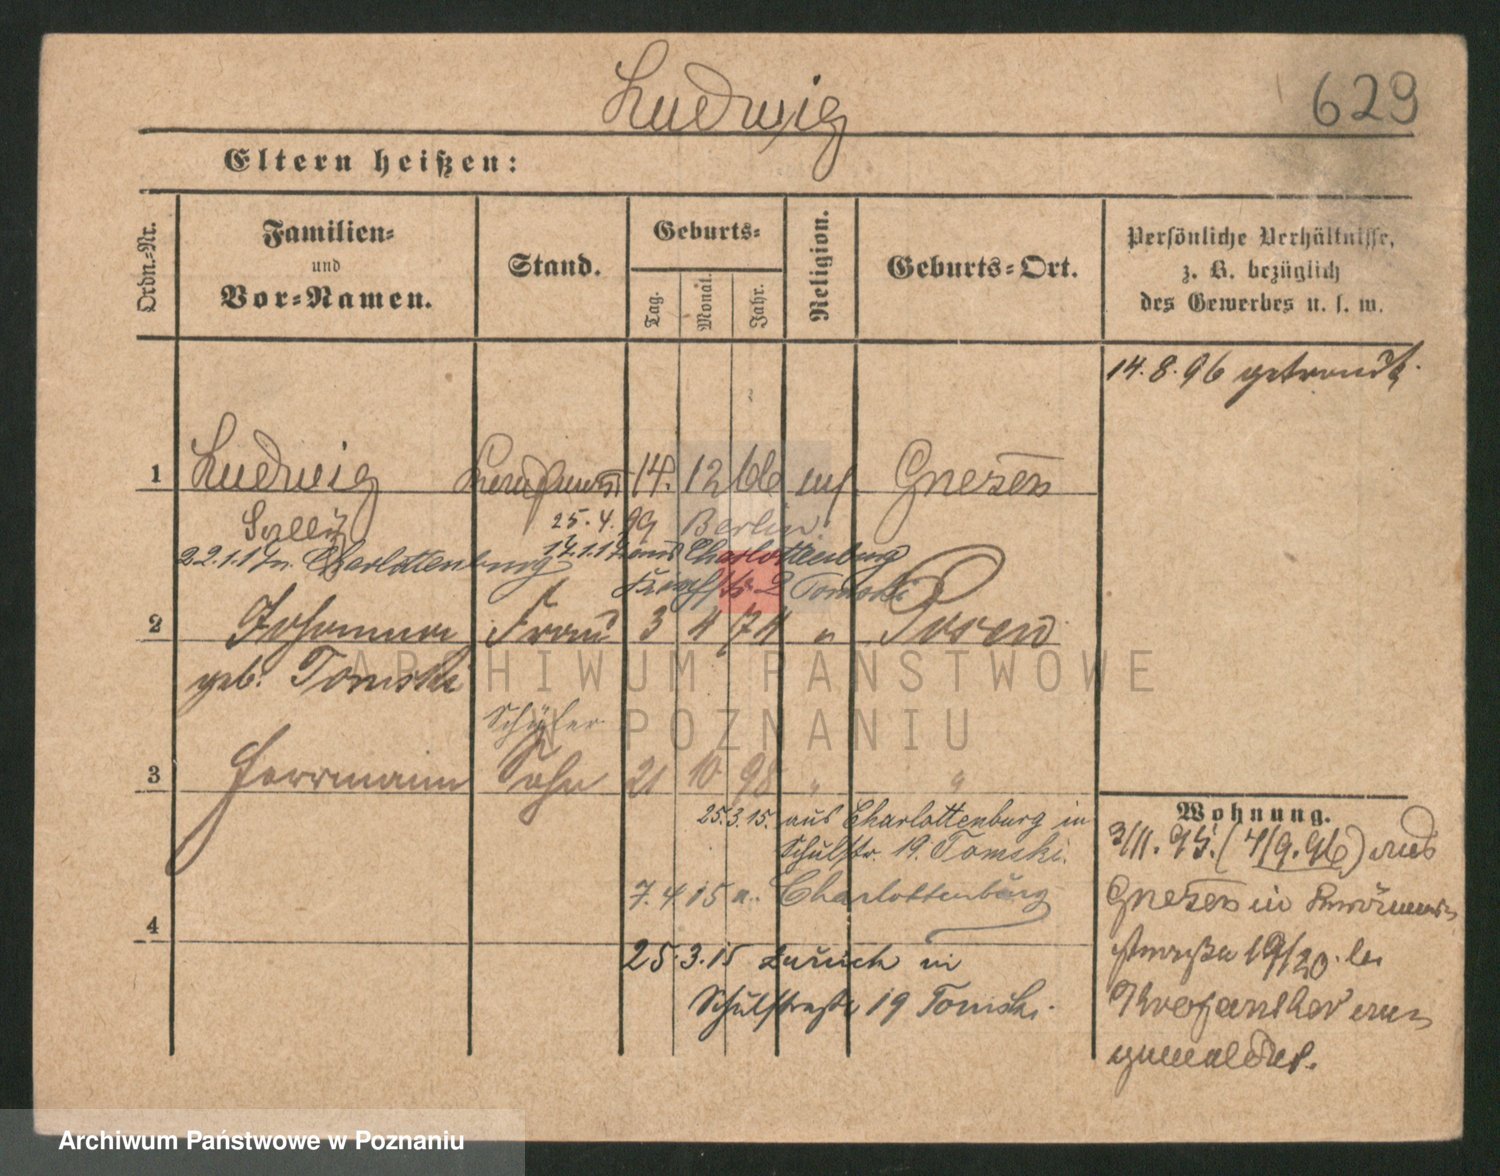 Ludwig
629
Eltern heißen:
Ordn.-Nr.
Familien-
und
Vor-Namen.
Stand.
Geburts-
Tag.
Monat.
Jahr.
Religion.
Geburts-Ort.
Persönliche Verhältnisse,
z. B. bezüglich
des Gewerbes u. s. w.
14.8.96 getraut
1 Ludwig Kaufmann 14. 12 66 Gnesen
Sally
25.4.99 Berlin
22.1.17 n. Charlottenburg 17.1.17 aus Charlottenburg
2 Tomski
2 Johanna Frau 3 4 74 " Posen
geb. Tomski
ARCHIWUM PAŃSTWOWE
W POZNANIU
Schüler
3 Herrmann Sohn 21 10 98 " "
25.3.15. aus Charlottenburg in
Schulstr. 19. Tomski.
7.4 15 n. Charlottenburg
4
25.3.15 zurück in
Schulstraße 19 Tomski.
Wohnung.
3/11. 95. (4/9.96) aus
Gnesen in
19/20. bei
gemeldet.
Archiwum Państwowe w Poznaniu